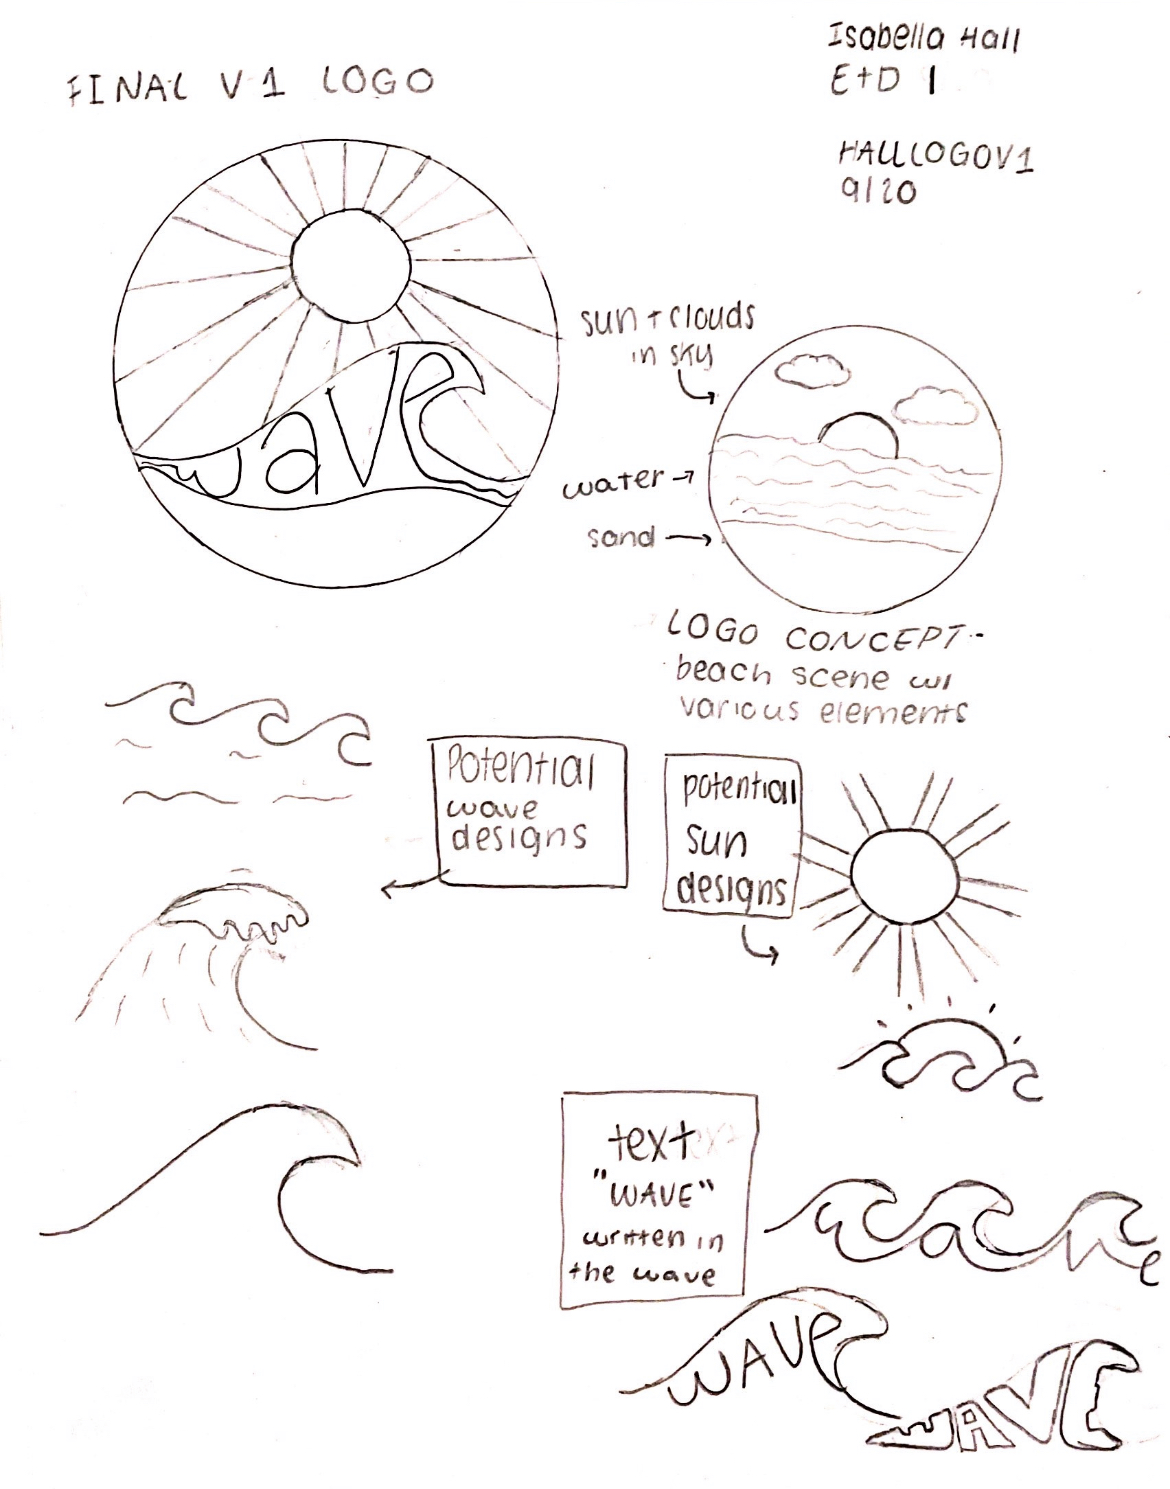 Isabella Hall
E+D 1
HALLLOGOV1
9/20
FINAL V1 LOGO
wave
sun + clouds
in sky
water
sand
LOGO CONCEPT-
beach scene w/
various elements
Potential
wave
designs
potential
sun
designs
text
"WAVE"
written in
the wave
wave
WAVe
WAVE